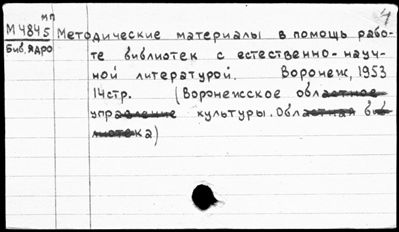 4
мп
М4845 Методические материалы в помощь рабо-
Биб. ядро те библиотек с естественно-науч-
ной литературой. Воронеж, 1953
14стр. (Воронежское областное
управление культуры. Областная биб
лиотека)